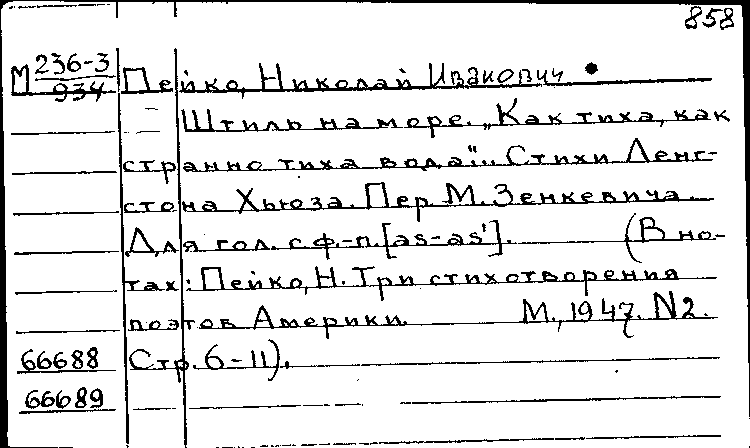 858
М 236-3 Пейко, Николай Иванович
934
Штиль на море. „Как тиха, как
странно тиха вода!".. Стихи Ленг-
стона Хьюза. Пер. М. Зенкевича.
Для гол. с ф.-п. [as-as¹]. (В но-
тах: Пейко, Н. Три стихотворения
поэтов Америки. М., 1947. N2.
66688 Стр. 6-11).
66689